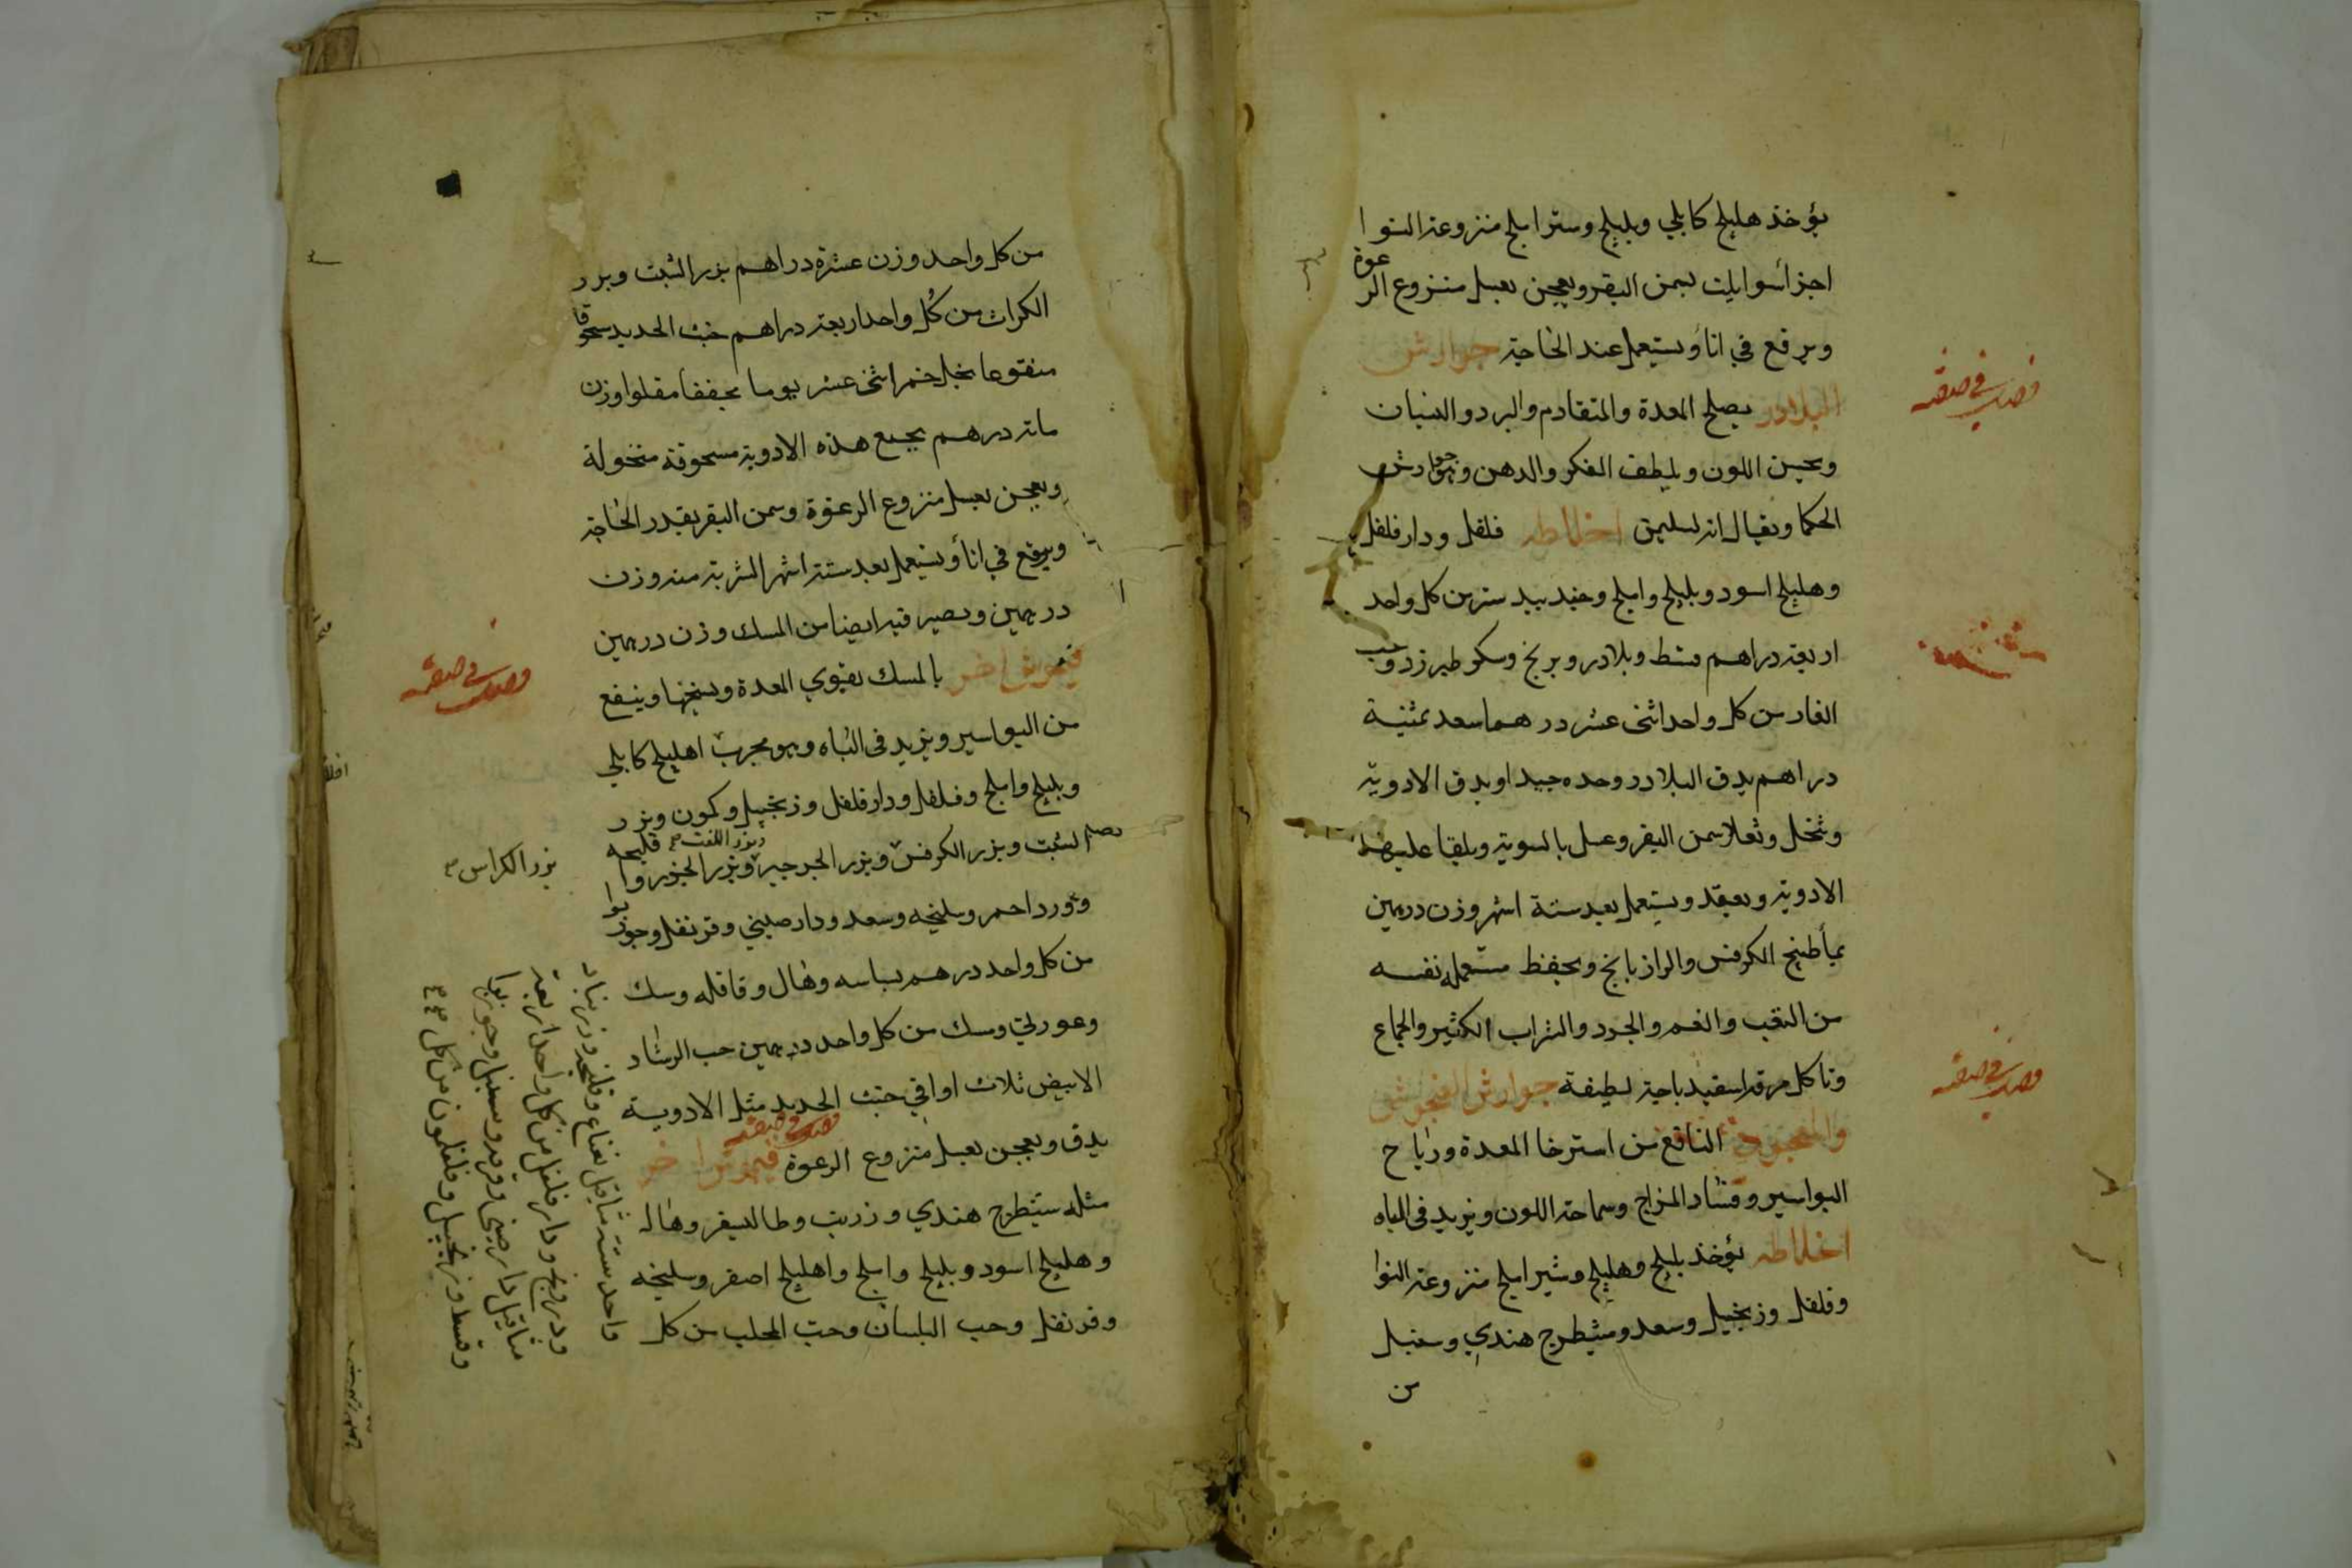 يؤخذ هليلج كابلي وبليلج وستر املج منزوعة النوا
اجزأ سوا يلت بسمن البقر ويعجن بعسل منزوع الرعوة
ويرفع في اناً ويستعمل عند الحاجة جوارش
البلادر يصلح المعدة والمتقادم والبرد والنسيان
ويحسن اللون ويلطف الفكر والدهن وهو جوارش
الحكما ويقال انه لسليمن اخلاطه فلفل ودارفلفل
وهليلج اسود وبليلج واملج وجندبيدستر من كل واحد
اربعة دراهم قسط وبلادر وبرنج وسكر طبرزد وحب
الغار من كل واحد اثنى عشر درهما سعد ثمنية
دراهم يدق البلادر وحده جيدا ويدق الادوية
وتنخل وتغلا سمن البقر وعسل بالسوية ويلقا عليهما
الادوية ويعقد ويستعمل بعد ستة اشهر وزن درهمين
بمأ طبيخ الكرفس والرازيانج ويحفظ مستعمله نفسه
من التعب والغم والجرد والشراب الكثير والجماع
وتاكل مرقة اسفيدباجة لطيفة جوارش الفنجوش
النافع من استرخا المعدة ورياح
البواسير وفساد المزاج وسماجة اللون ويزيد في الباه
اخلاطه يؤخذ بليلج وهليلج وشير املج منزوعة النوا
وفلفل وزنجبيل وسعد وشيطرج هندي وسنبل
من
من كل واحد وزن عشرة دراهم بزر الشبت وبزر
الكراث من كل واحد اربعة دراهم خبث الحديد سحوقا
منقوعا بخل خمر اثنى عشر يوما مجففا مقلوا وزن
ماية درهم يجمع هذه الادوية مسحوقة منخولة
ويعجن بعسل منزوع الرعوة وسمن البقر بقدر الحاجة
ويرفع في اناً ويستعمل بعد ستة اشهر الشربة منه وزن
درهمين ويصير فيه ايضا من المسك وزن درهمين
فنجوش اخر بالمسك يقوي المعدة ويسخنها وينفع
من البواسير ويزيد في الباه وهو مجرب اهليلج كابلي
وبليلج واملج وفلفل ودارفلفل وزنجبيل وكمون وبزر
الشبت وبزر الكرفس وبزر الجرجير وبزر الجزر
وبزر اللفت
بزر الكراس
وورد احمر وسليخه وسعد ودارصيني وقرنفل وجوزبوا
من كل واحد درهم بسباسه وهال وقاقله وسك
وعود ني ومسك من كل واحد درهمين حب الرشاد
الابيض ثلاث اواقي خبث الحديد مثل الادوية
يدق ويعجن بعسل منزوع الرعوة فنجوش اخر
مثله شيطرج هندي وزرنب وطاليسفر وهال
وهليلج اسود وبليلج واملج واهليلج اصفر وسليخه
وقرنفل وحب البلسان وحب المحلب من كل
واحد ستة مثاقيل نعناع
ودارفلفل من كل واحد اربعة
مثاقيل دارصيني وقرفه وسنبل وجوزبوا
وقسط وزنجبيل وفلفلمون من كل